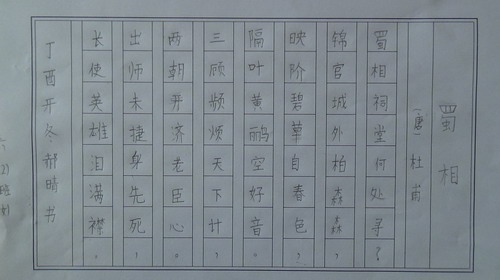 蜀相
（唐）杜甫
蜀相祠堂何处寻？
锦官城外柏森森。
映阶碧草自春色，
隔叶黄鹂空好音。
三顾频烦天下计，
两朝开济老臣心。
出师未捷身先死，
长使英雄泪满襟。
丁酉开冬郝晴书